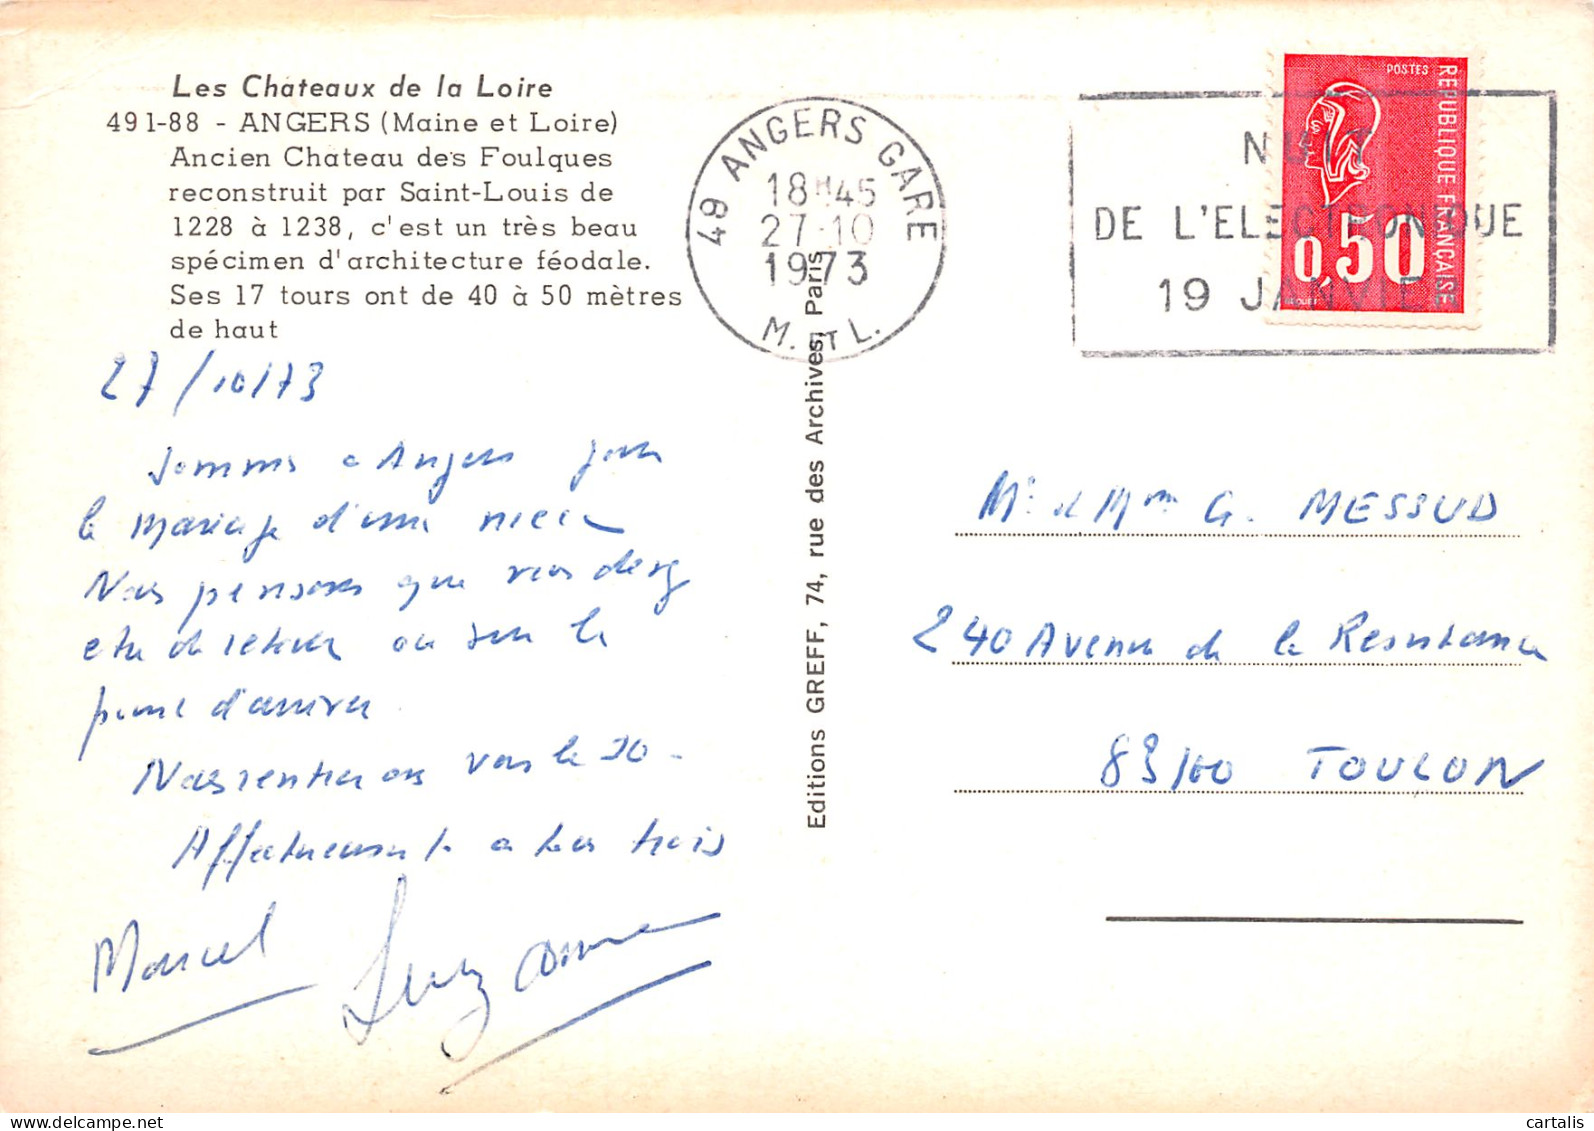 Les Chateaux de la Loire
491-88 - ANGERS (Maine et Loire)
Ancien Chateau des Foulques
reconstruit par Saint-Louis de
1228 à 1238, c'est un très beau
spécimen d'architecture féodale.
Ses 17 tours ont de 40 à 50 mètres
de haut
27/10/73
Sommes a Angers pour
le mariage d'une niece
Nous pensons que vous
de retour ou sur le
point d'arriver
Nous rentrerons vers le 30-
Affectueusement a tous trois
Marcel Suzanne
Editions GREFF, 74, rue des Archives, Paris
49 ANGERS GARE
18H45
27-10
1973
M. ET L.
NUIT
DE L'ELECTRONIQUE
19 JANVIE
POSTES
REPUBLIQUE FRANÇAISE
0,50
BEQUET
Mr et Mme G. MESSUD
240 Avenue de la Resistance
83100 TOULON
cartalis
delcampe.net